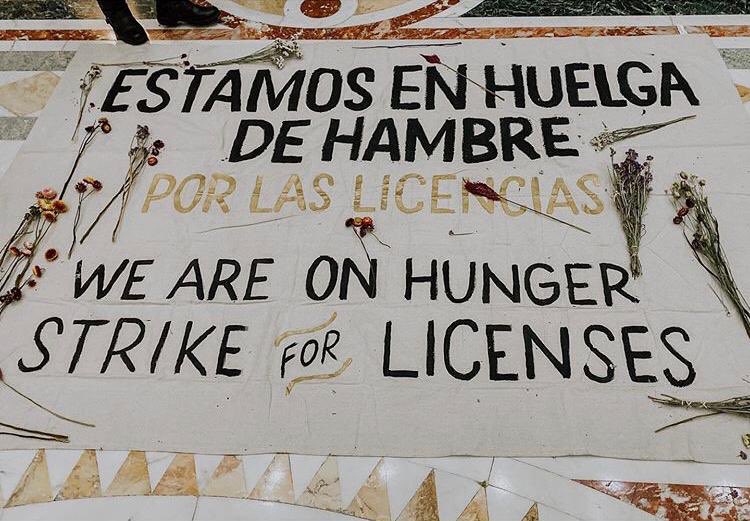 ESTAMOS EN HUELGA
DE HAMBRE
POR LAS LICENCIAS
WE ARE ON HUNGER
STRIKE FOR LICENSES